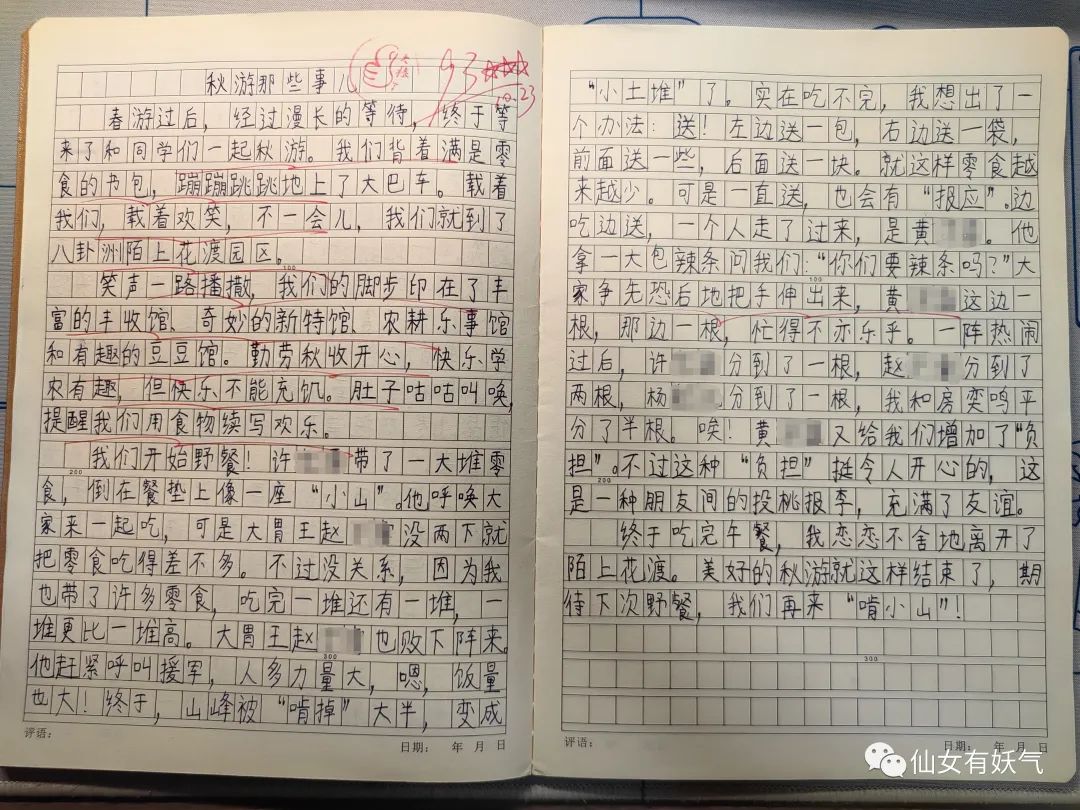 秋游那些事儿
93
10.23
春游过后，经过漫长的等待，终于等
来了和同学们一起秋游。我们背着满是零
食的书包，蹦蹦跳跳地上了大巴车。载着
我们，载着欢笑，不一会儿，我们就到了
八卦洲陌上花渡园区。
笑声一路播撒，我们的脚步印在了丰
100
富的丰收馆、奇妙的新特馆、农耕乐事馆
和有趣的豆豆馆。勤劳秋收开心，快乐学
农有趣，但快乐不能充饥。肚子咕咕叫唤，
提醒我们用食物续写欢乐。
我们开始野餐！许带了一大堆零
200
食，倒在餐垫上像一座“小山”。他呼唤大
家来一起吃，可是大胃王赵没两下就
把零食吃得差不多。不过没关系，因为我
也带了许多零食，吃完一堆还有一堆，一
堆更比一堆高。大胃王赵也败下阵来。
300
他赶紧呼叫援军，人多力量大，嗯，饭量
也大！终于，山峰被“啃掉”大半，变成
评语：
日期： 年 月 日
“小土堆”了。实在吃不完，我想出了一
个办法：送！左边送一包，右边送一袋，
前面送一些，后面送一块。就这样零食越
来越少。可是一直送，也会有“报应”。边
吃边送，一个人走了过来，是黄。他
拿一大包辣条问我们：“你们要辣条吗？”大
100
家争先恐后地把手伸出来，黄这边一
根，那边一根，忙得不亦乐乎。一阵热闹
过后，许分到了一根，赵分到了
两根，杨分到了一根，我和房奕鸣平
分了半根。唉！黄又给我们增加了“负
担”。不过这种“负担”挺令人开心的，这
200
是一种朋友间的投桃报李，充满了友谊。
终于吃完午餐，我恋恋不舍地离开了
陌上花渡。美好的秋游就这样结束了，期
待下次野餐，我们再来“啃小山”！
300
评语：
日期： 年 月 日
仙女有妖气